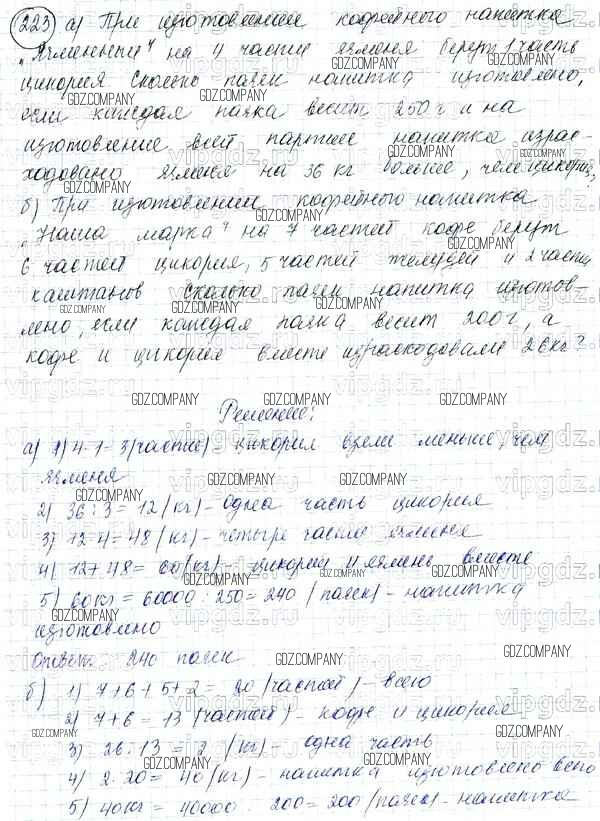 223 а) При изготовлении кофейного напитка
„Ячменный" на 4 части ячменя берут 1 часть
цикория Сколько пачек напитка изготовлено,
если каждая пачка весит 250 г и на
изготовление всей партии напитка израс-
ходовано ячменя на 36 кг больше, чем цикория?
б) При изготовлении кофейного напитка
„Наша марка" на 7 частей кофе берут
6 частей цикория, 5 частей желудей и 2 части
каштанов Сколько пачек напитка изготов-
лено, если каждая пачка весит 200 г, а
кофе и цикория вместе израсходовали 26 кг?
Решение:
а) 1) 4-1=3 (части) - цикория взяли меньше, чем
ячменя
2) 36:3=12 (кг) - одна часть цикория
3) 12·4=48 (кг) - четыре части ячменя
4) 12+48=60 (кг) - цикорий и ячмень вместе
5) 60кг=60000:250=240 (пачек) - напитка
изготовлено
Ответ: 240 пачек
б) 1) 7+6+5+2=20 (частей) - всего
2) 7+6=13 (частей) - кофе и цикория
3) 26:13=2 (кг) - одна часть
4) 2·20=40 (кг) - напитка изготовлено всего
5) 40кг=40000:200=200 (пачек) - напитка
GDZ.COMPANY
vipgdz.ru